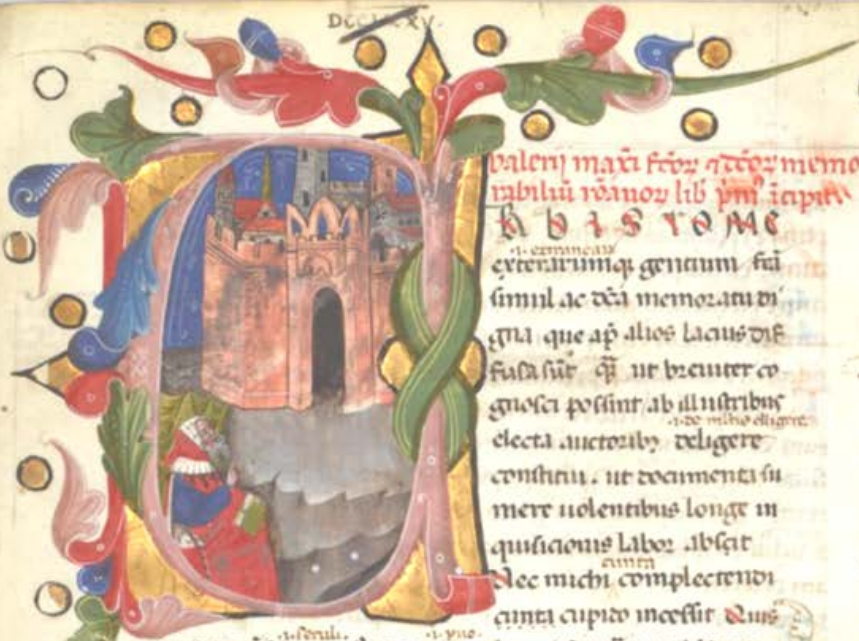 valerij maxi fcōꝝ ⁊ dcōꝝ memo
rabiliū rōanoꝝ lib pͥm⁹ īcipit
R B I S R O M E
.i. extranearū
exterarumqꝫ gentium fcā
simul ac dcā memoratu di
gna que ap̄ alios lacius dif
fusa sūt qͣꝫ ut breuiter co
gnosci possint ab illustribus
.i. do initio eligere
electa auctoribꝫ deligere
constitui. ut documenta su
mere uolentibus longe in
quisicionis labor absit
cunta
Nec michi complectendi
cunta cupido incessit Quis
.i. seculi.